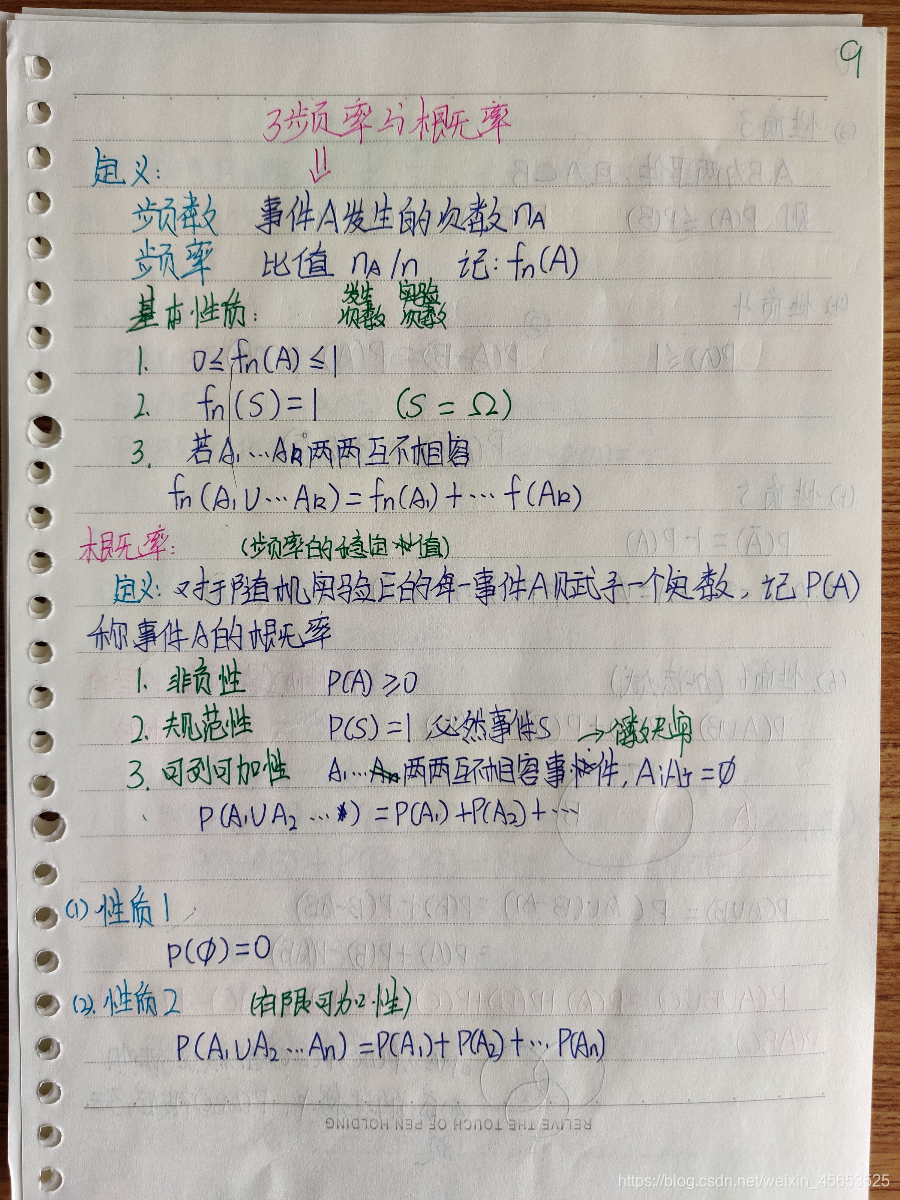 9
3 频率与概率
⇓
定义:
频数 事件A发生的次数 nA
频率 比值 nA/n 记: fn(A)
发生次数 实验次数
基本性质:
1. 0≤fn(A)≤1
2. fn(S)=1 (S=Ω)
3. 若A1…Ak两两互不相容
fn(A1∪…Ak)=fn(A1)+…f(Ak)
概率: (频率的稳定值)
定义: 对于随机实验E的每一事件A赋予一个实数, 记P(A)
称事件A的概率
1. 非负性 P(A)≥0
2. 规范性 P(S)=1 必然事件S →
3. 可列可加性 A1…两两互不相容事件, AiAj=∅
P(A1∪A2…)=P(A1)+P(A2)+…
(1) 性质1
P(∅)=0
(2) 性质2 (有限可加性)
P(A1∪A2…An)=P(A1)+P(A2)+…P(An)
RELIVE THE TOUCH OF PEN HOLDING
https://blog.csdn.net/weixin_45653525